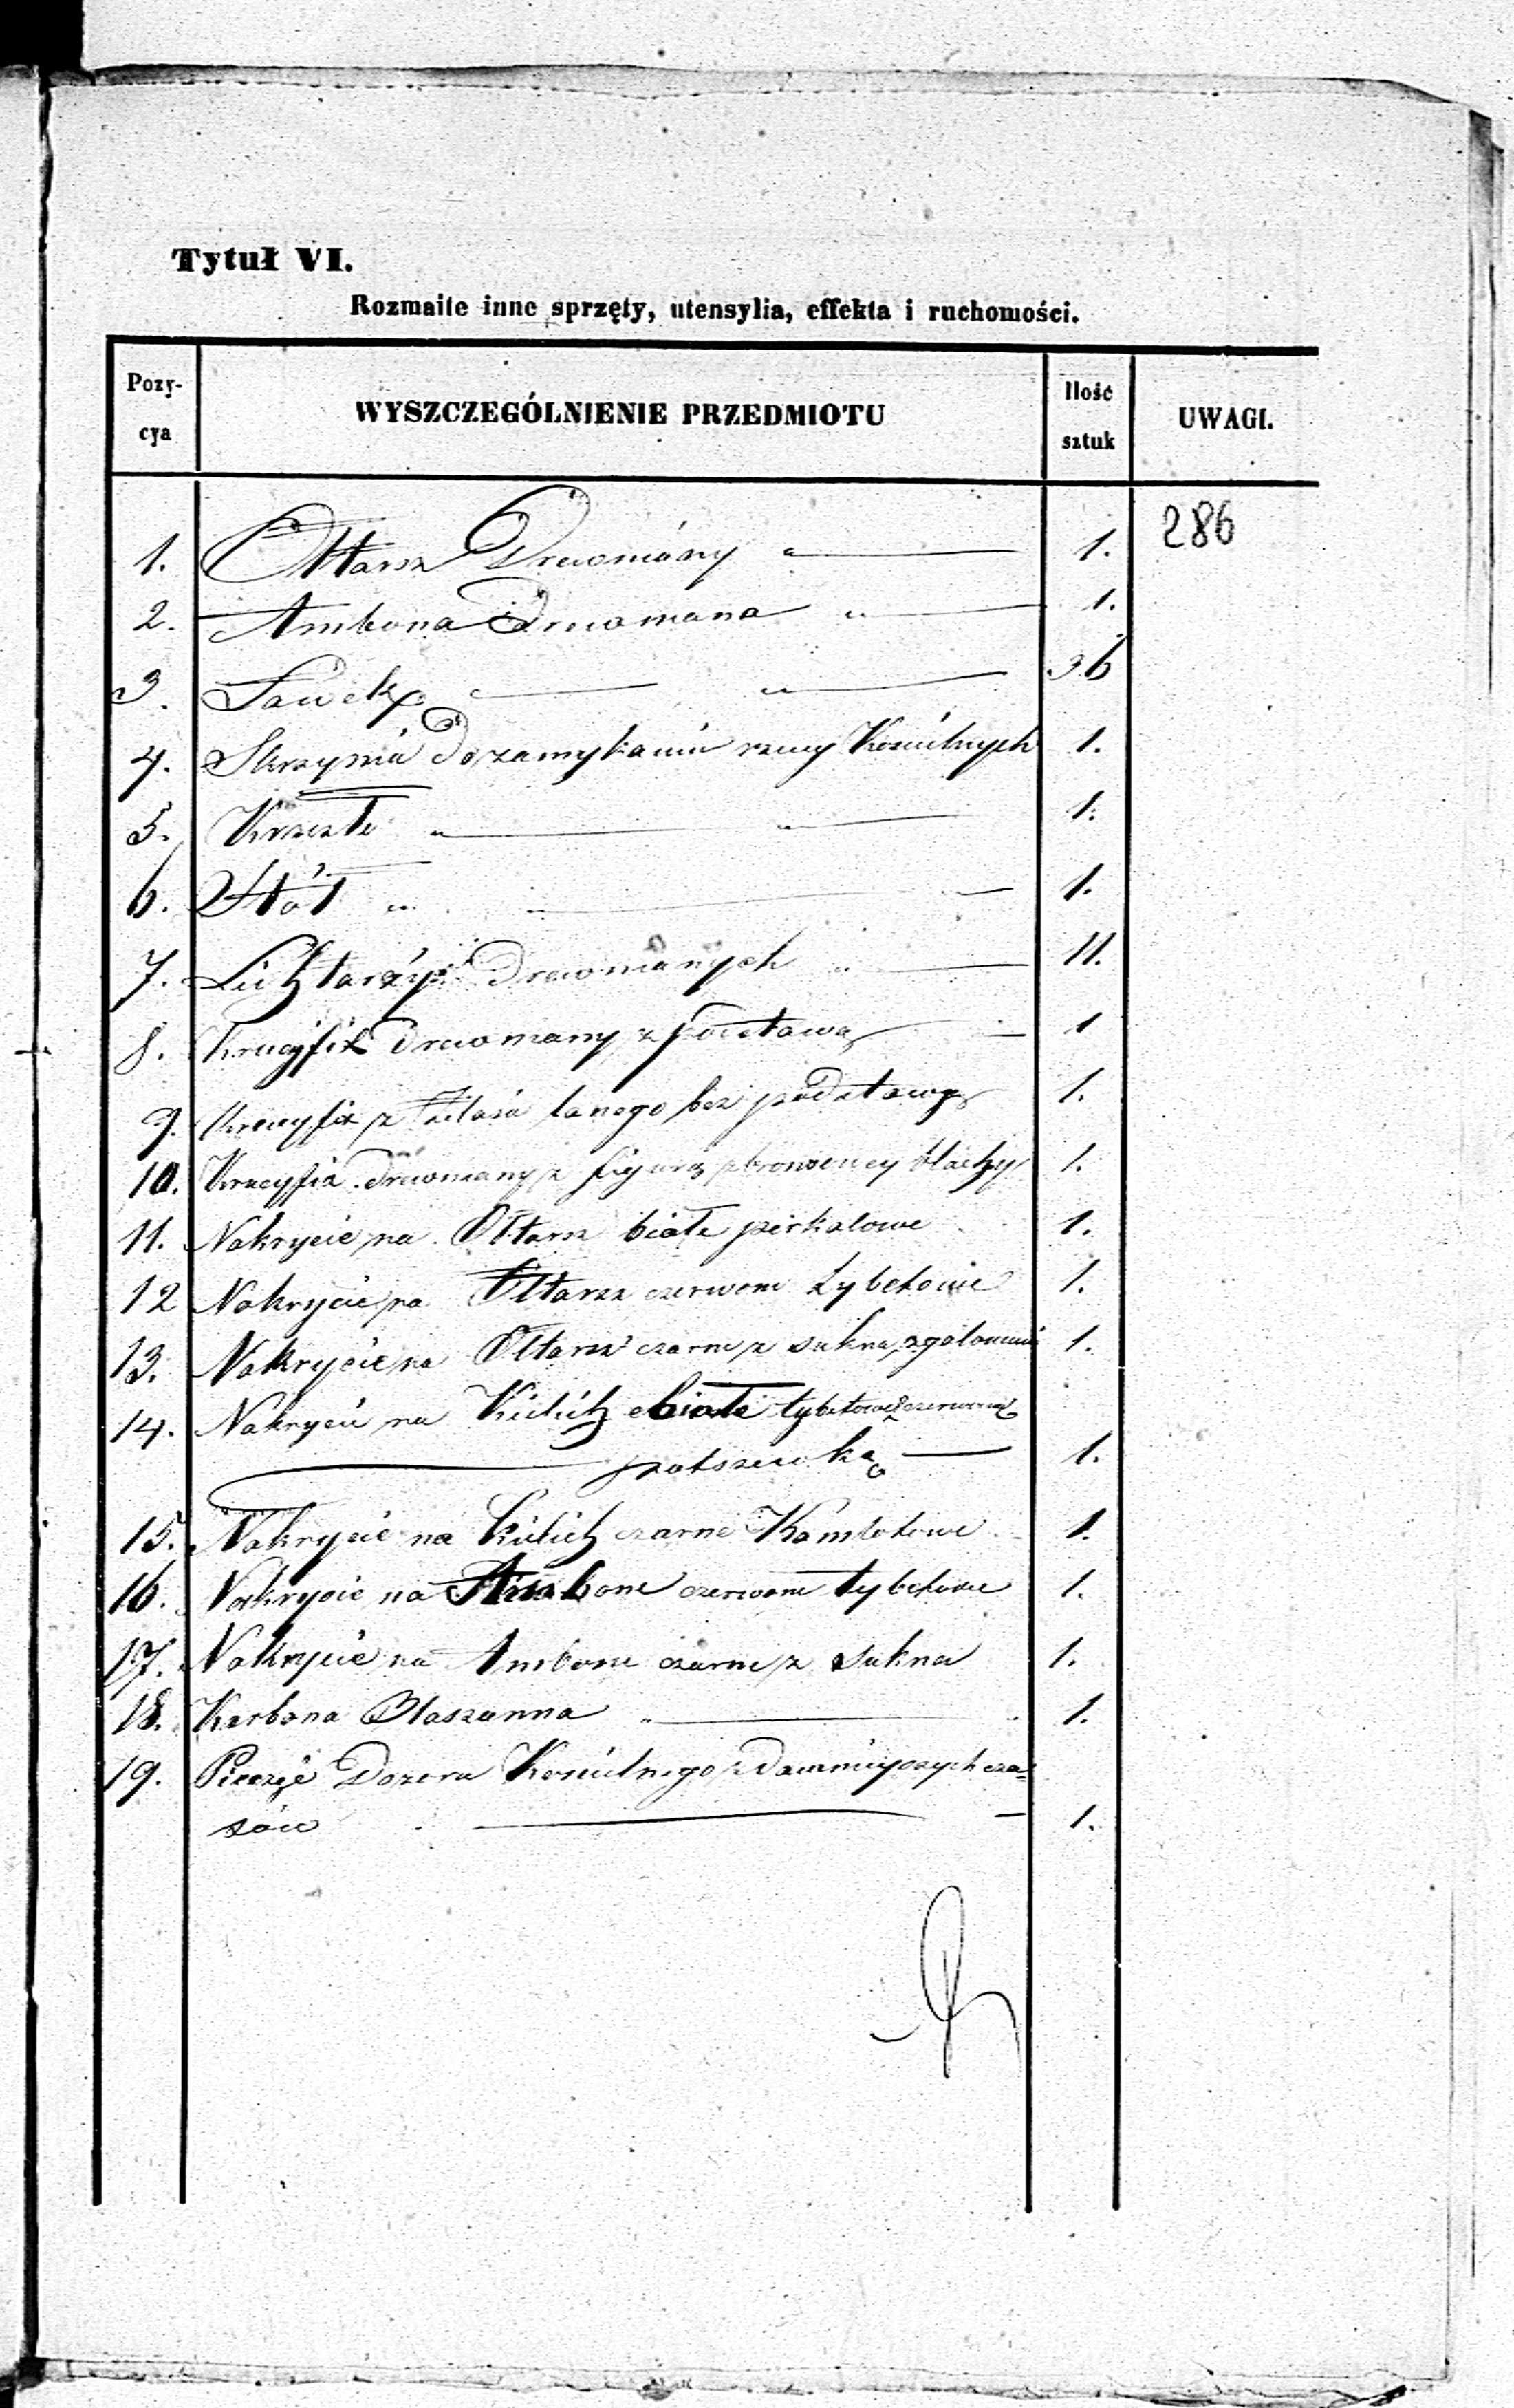 Tytuł VI.
Rozmaite inne sprzęty, utensylia, effekta i ruchomości.
Pozy-
cya
WYSZCZEGÓLNIENIE PRZEDMIOTU
Ilość
sztuk
UWAGI.
286
1. Ołtarz Drewniány " 1.
2. Ambona Drewniana " 1.
3. Ławek " 36
4. Skrzynia do zamykania rzeczy Kościelnych 1.
5. Krzesło " " 1.
6. Stół " 1.
7. Lichtarzy drewnianych " 11.
8. Krucyfix drewniany z podstawą 1
9. Krucyfix z żelaza lanego bez podstawy 1.
10. Krucyfix drewniany z figurą z bronzowey blachy 1.
11. Nakrycie na Ołtarz białe perkalowe 1.
12 Nakrycie na Ołtarz czerwone tybetowe 1.
13. Nakrycie na Ołtarz czarne z sukna, z galonami 1.
14. Nakrycie na Kielich białe tybetowe z czerwoną
podszewką 1.
15. Nakrycie na Kielich czarne Kamlotowe 1.
16. Nakrycie na Ambone czerwone tybetowe 1.
17. Nakrycie na Ambone czarne z sukna 1.
18. Karbona Blaszanna " 1.
19. Pieczęć Dozoru Kościelnego z dawniejszych cza=
sów 1.